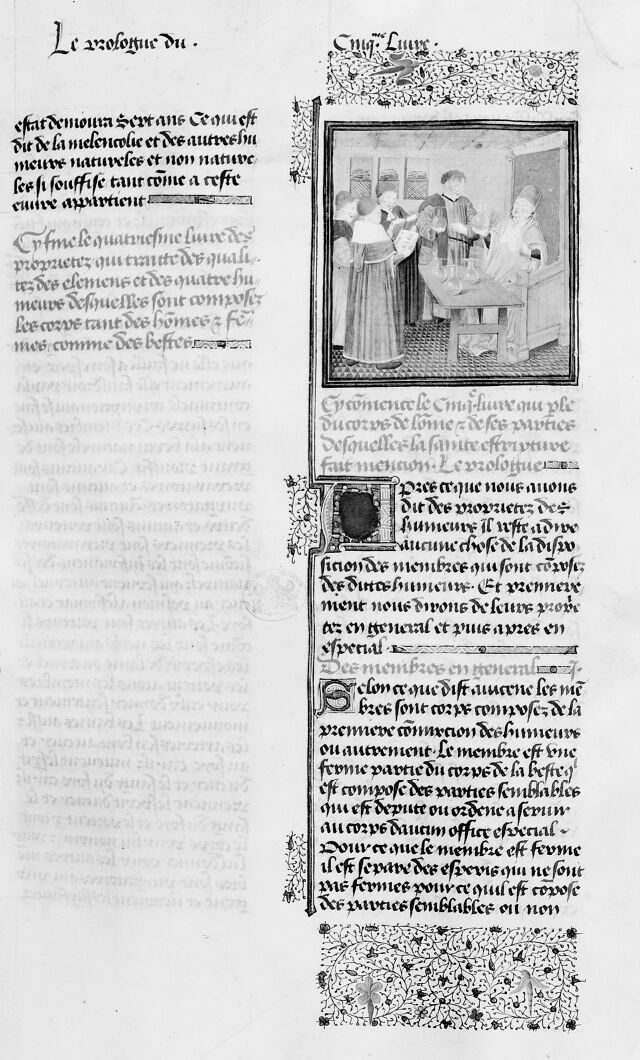 Le prologue du .
Cinq.me Livre .
estat demoura Sept ans Ce qui est
dit de la melencolie et des autres hu
meurs natureles et non nature
les si souffise tant cōme a ceste
euure appartient
Cy fine le quatriesme livre des
proprietez qui traitte des quali-
tez des elemens et des quatre hu-
meurs desquelles sont composez
les corps tant des hōmes & fē-
mes, comme des bestes
Cy cōmence le Cinq.e livre qui ple
du corps de lōme & de ses parties
desquelles la sainte escripture
fait mention. Le prologue
Apres ce que nous auons
dit des proprietez des
humeurs il reste a dire
aucune chose de la dispo
sicion des membres qui sont cōposez
des dittes humeurs. Et premiere
ment nous dirons de leurs propre
tez en general et puis apres en
especial.
Des membres en general. I.
Selon ce que dist auicene les mē
bres sont corps composez de la
premiere cōmixcion des humeurs
ou autrement. Le membre est vne
ferme partie du corps de la beste q
est compose des parties semblables
qui est depute ou ordene a seruir
au corps daucun office especial.
Pour ce que le membre est ferme
il est separe des esperis qui ne sont
pas fermes pour ce quil est cōpose
des parties semblables ou non